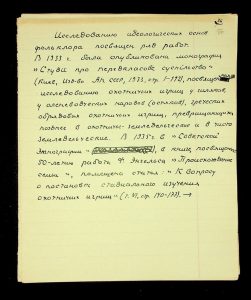 Исследованию идеологических основ
фольклора посвящен ряд работ.
В 1933 г. была опубликована монография
"Студii про передкласове суспільство"
(Киев, Изд-во АН СССР, 1933, стр. 1-198), посвященная
исследованию охотничьих игрищ у гиляков,
у оленеводческих народов (осетинов), греческих
обрядовых охотничьих игрищ, превращающихся
позднее в охотничье-земледельческие и в чисто
земледельческие. В 1935 г. в "Советской
этнографии" в книге посвященной
50-летию работы Ф. Энгельса "Происхождение
семьи", помещена статья: "К вопросу
о постановке стадиального изучения
охотничьих игрищ" (т. VI, стр.